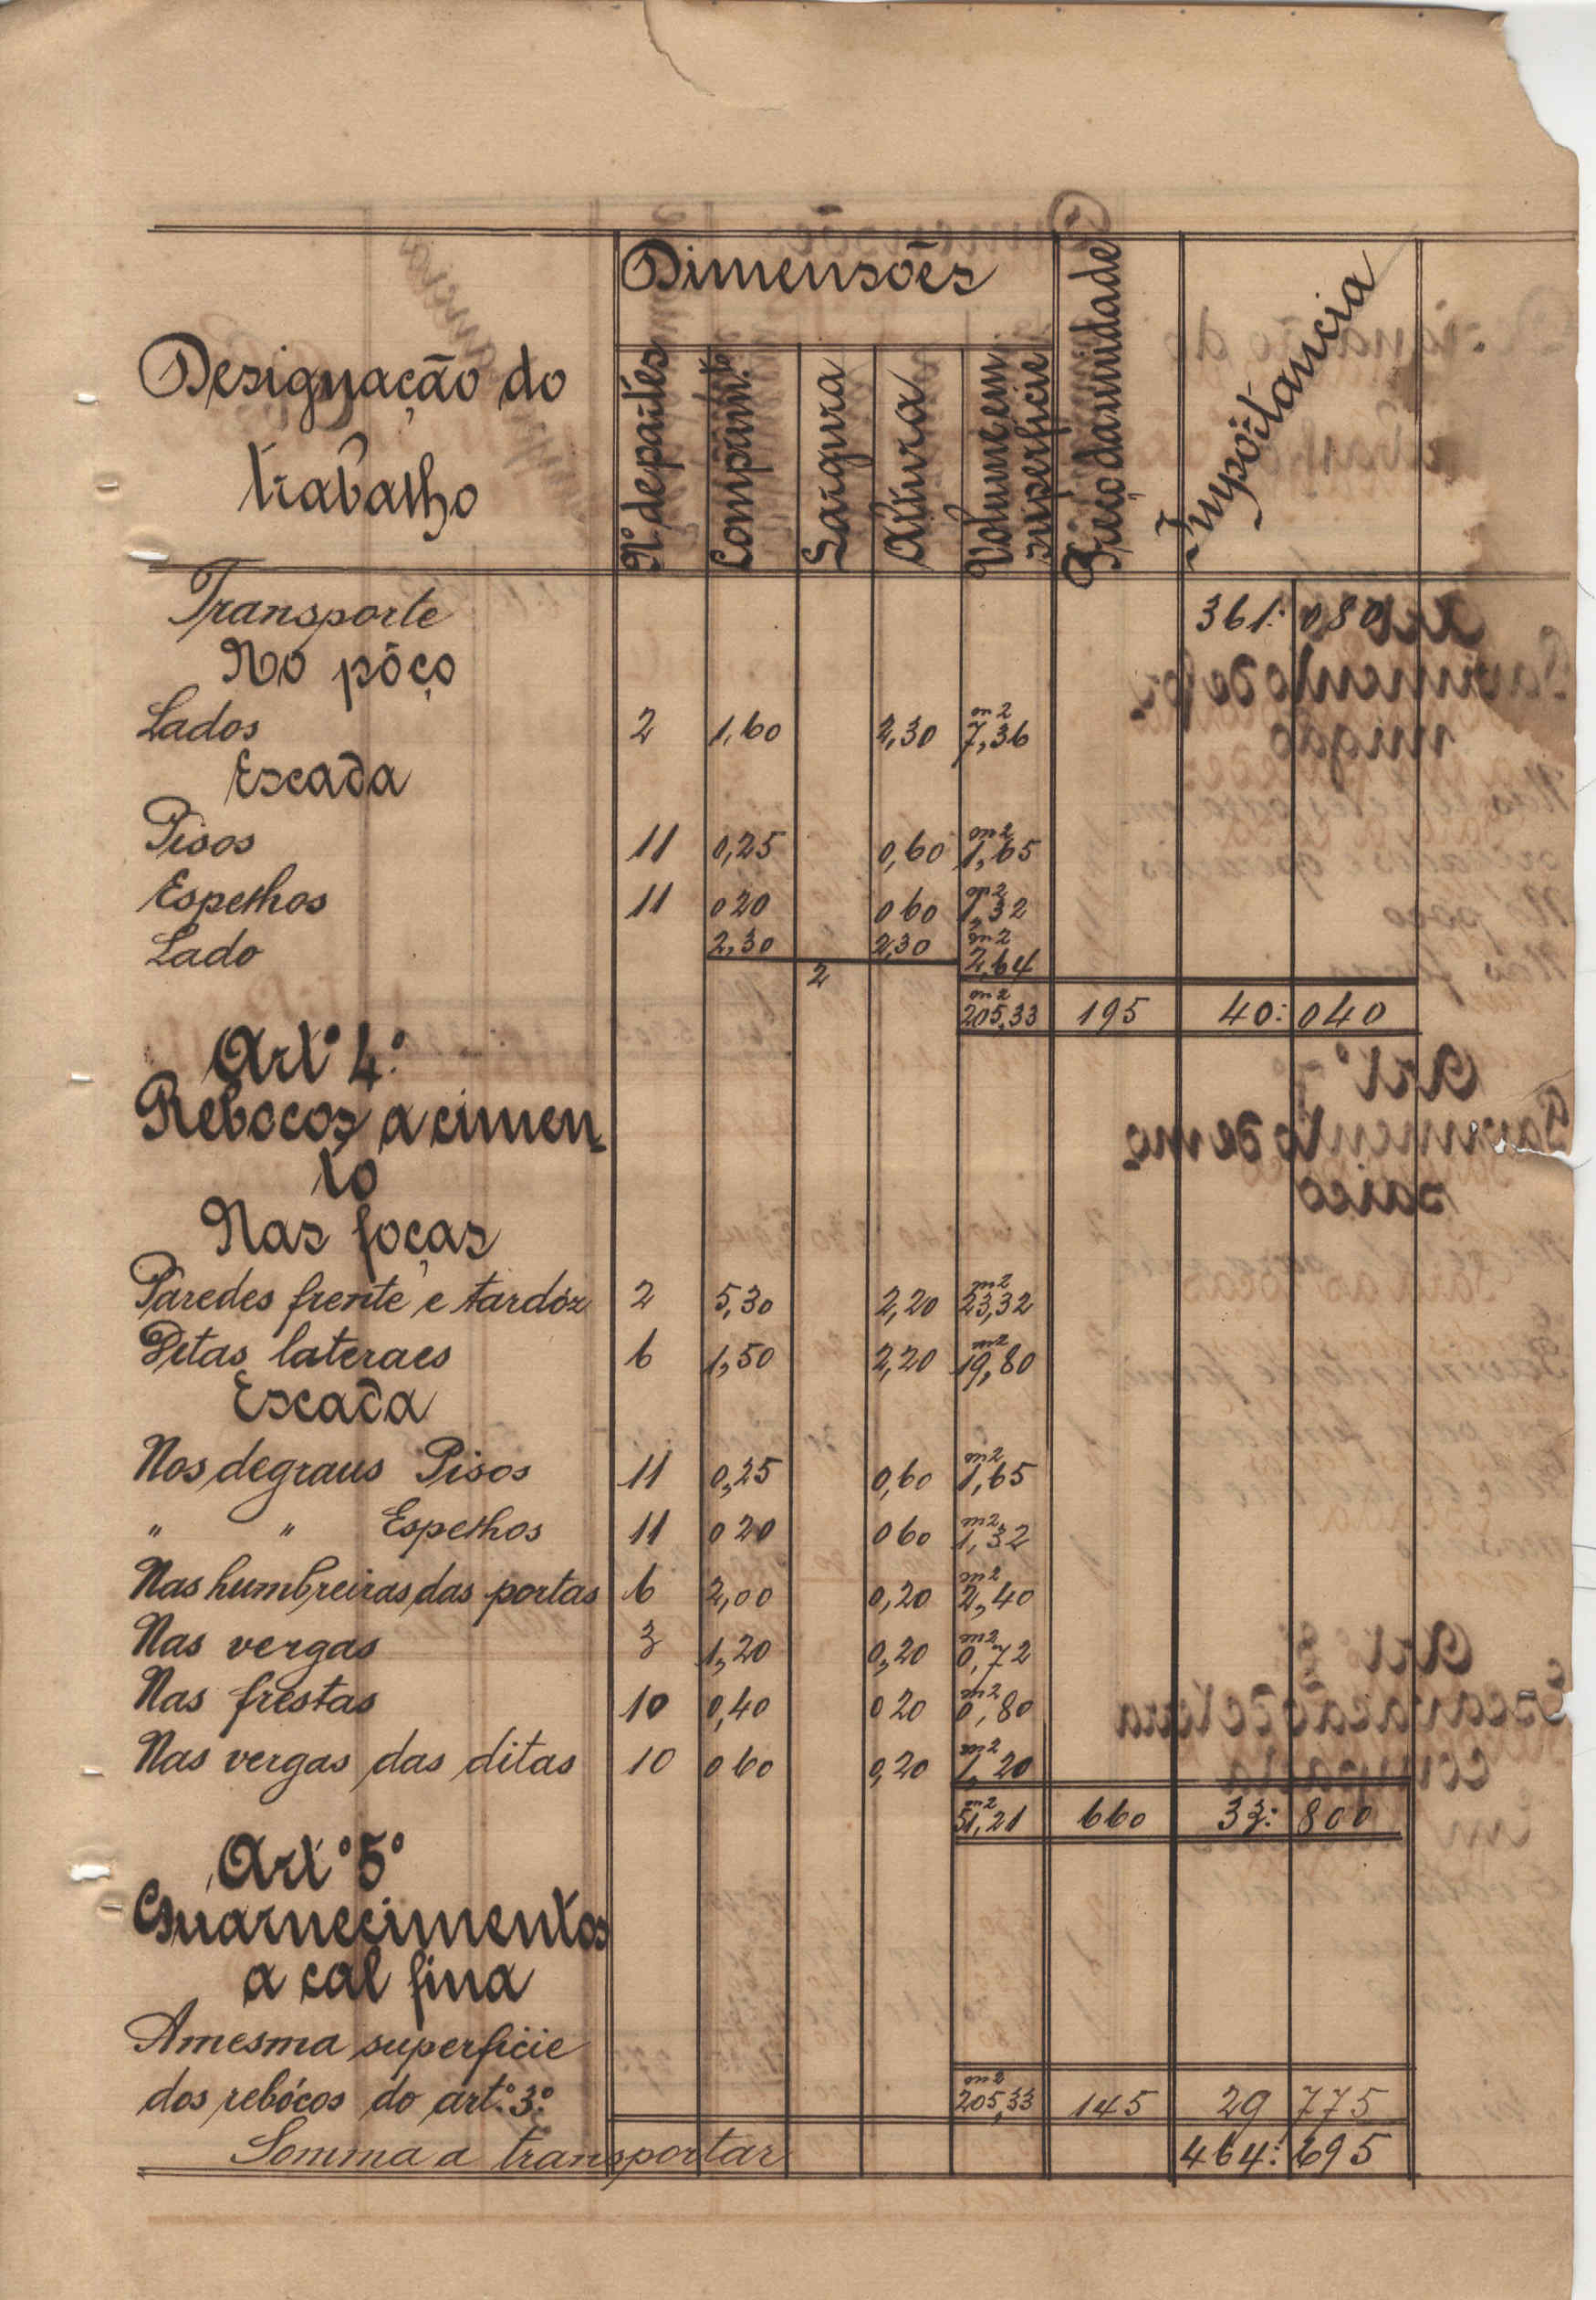 Dimensões
Designação do
trabalho
Nº de partes
Compum.to
Largura
Altura
Volume em
superficie
Preço da unidade
Importancia
Transporte 361: 080
No pôço
Lados 2 1,60 2,30 m2 7,36
Escada
Pisos 11 0,25 0,60 m2 1,65
Espelhos 11 0 20 0 60 m2 1,32
Lado 2,30 2,30 m2 2,64
2
m2 205,33 195 40: 040
Artº 4.º
Rebocos a cimen
to
Nas foças
Paredes frente e tardóz 2 5,30 2,20 m2 23,32
Ditas lateraes 6 1,50 2,20 m2 19,80
Escada
Nos degraus Pisos 11 0,25 0,60 m2 1,65
" " Espelhos 11 0 20 0 60 m2 1,32
Nas humbreiras das portas 6 2,00 0,20 m2 2,40
Nas vergas 3 1,20 0,20 m2 0,72
Nas frestas 10 0,40 0 20 m2 0,80
Nas vergas das ditas 10 0 60 0,20 m2 1,20
m2 51,21 660 33: 800
Artº 5º
Guarnecimentos
a cal fina
A mesma superficie
dos rebócos do art.º 3.º m2 205,33 145 29 775
Somma a transportar 464: 695